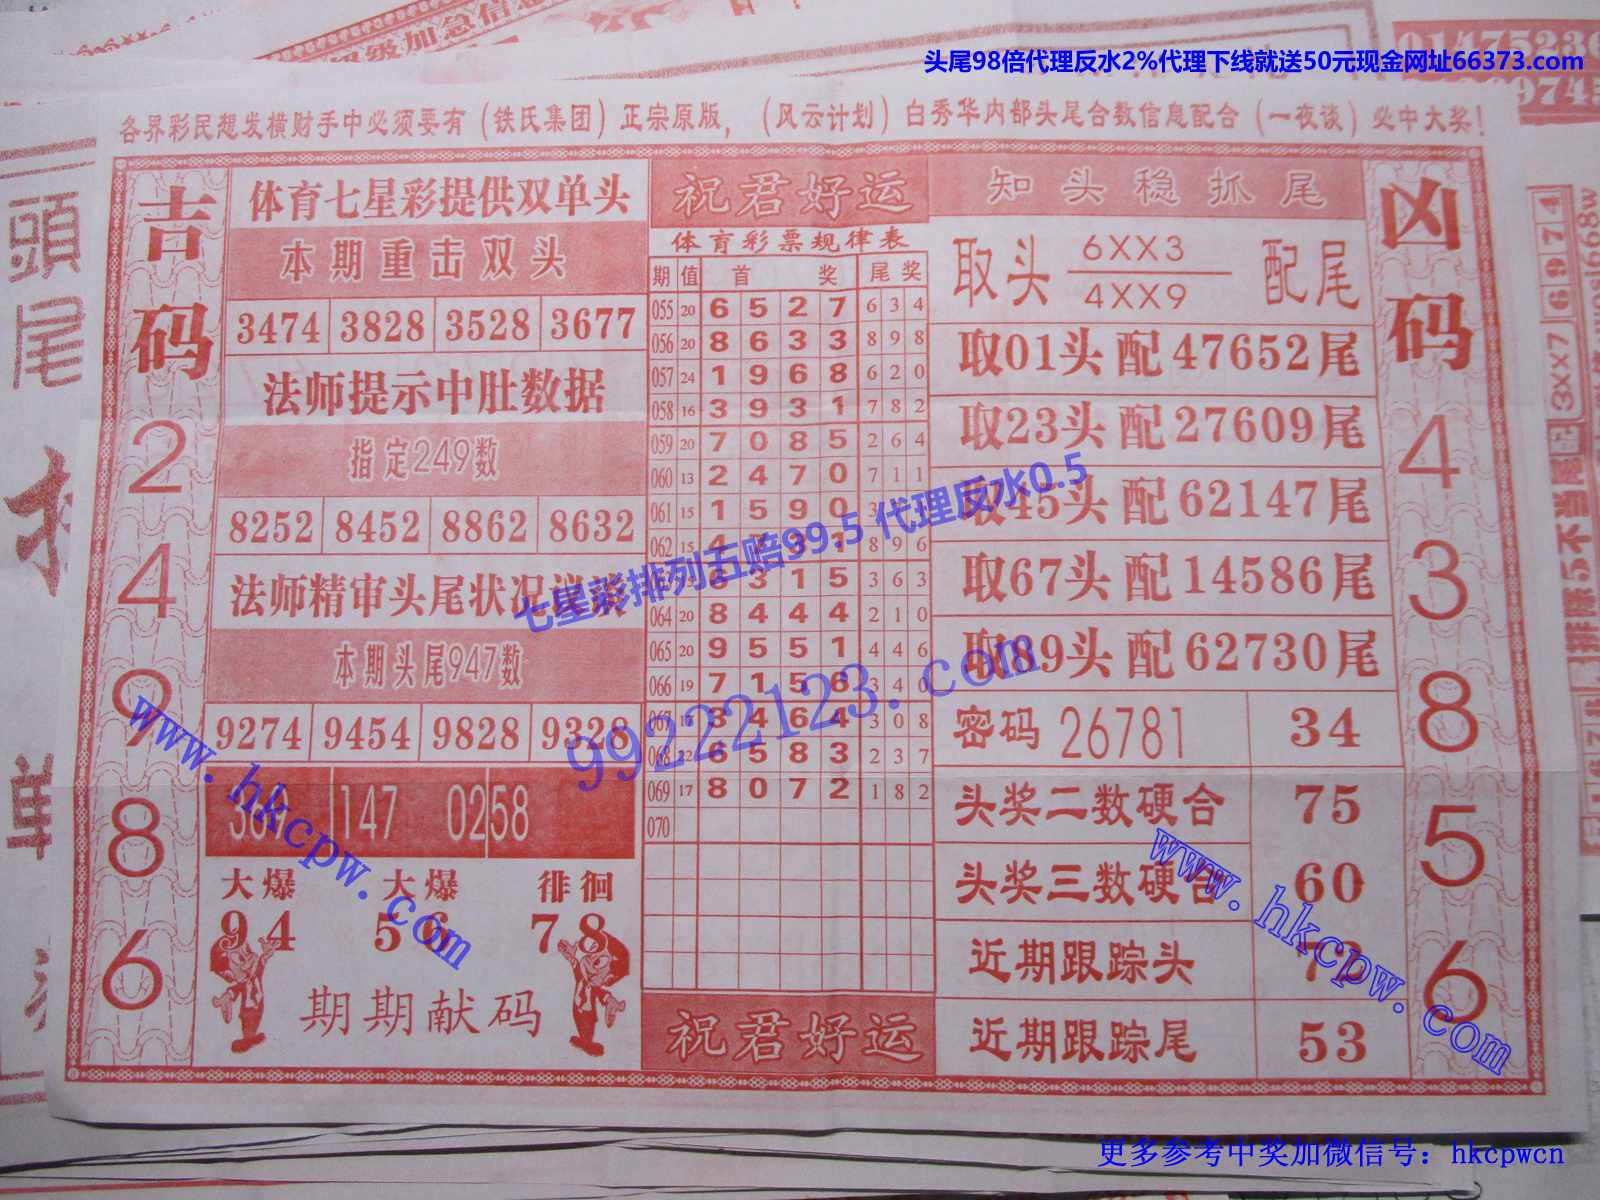 超级加急信息
头尾98倍代理反水2%代理下线就送50元现金网址66373.com
各界彩民想发横财手中必须要有（铁氏集团）正宗原版，（风云计划）白秀华内部头尾合数信息配合（一夜谈）必中大奖！
頭尾
吉码
2
4
9
8
6
体育七星彩提供双单头
本期重击双头
3474 3828 3528 3677
法师提示中肚数据
指定249数
8252 8452 8862 8632
法师精审头尾状况
本期头尾947数
9274 9454 9828 9328
147 0258
大爆 大爆 徘徊
94 56 78
期期献码
祝君好运
体育彩票规律表
期 值 首 奖 尾 奖
055 20 6 5 2 7 6 3 4
056 20 8 6 3 3 8 9 8
057 24 1 9 6 8 6 2 0
058 16 3 9 3 1 7 8 2
059 20 7 0 8 5 2 6 4
060 13 2 4 7 0 7 1 1
061 15 1 5 9 0 3
062 15 4 3 1 8 9 6
3 1 5 3 6 3
064 20 8 4 4 4 2 1 0
065 20 9 5 5 1 4 4 6
066 19 7 1 5 6 3 4 0
067 17 3 4 6 4 3 0 8
068 22 6 5 8 3 2 3 7
069 17 8 0 7 2 1 8 2
070
祝君好运
知头稳抓尾
取头 6XX3 配尾
4XX9
取01头 配 47652尾
取23头 配 27609尾
取45头 配 62147尾
取67头 配 14586尾
取89头 配 62730尾
密码 26781 34
头奖二数硬合 75
头奖三数硬合 60
近期跟踪头 72
近期跟踪尾 53
凶码
4
3
8
5
6
3XX7 6974
排除5不当尾
七星彩排列五赔99.5 代理反水0.5
99222123.com
www.hkcpw.com
www.hkcpw.com
更多参考中奖加微信号：hkcpwcn